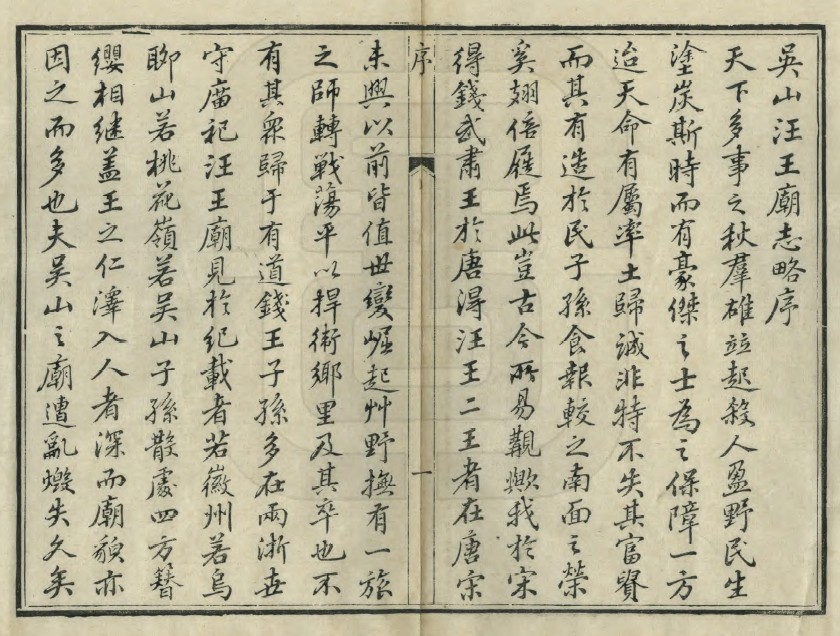 吳山汪王廟志略序
天下多事之秋羣雄竝起殺人盈野民生
塗炭斯時而有豪傑之士為之保障一方
迨天命有屬率土歸誠非特不失其富貴
而其有造於民子孫食報較之南面之榮
奚翅倍蓰焉此豈古今所易覯歟我於宋
得錢武肅王於唐得汪王二王者在唐宋
序
一
未興以前皆值世變崛起艸野撫有一旅
之師轉戰蕩平以捍衛鄉里及其卒也不
有其眾歸于有道錢王子孫多在兩浙世
守廬祀汪王廟見於紀載者若徽州若烏
聊山若桃花嶺若吳山子孫散處四方簪
纓相継盖王之仁澤入人者深而廟貌亦
因之而多也夫吳山之廟遭亂燬失久矣